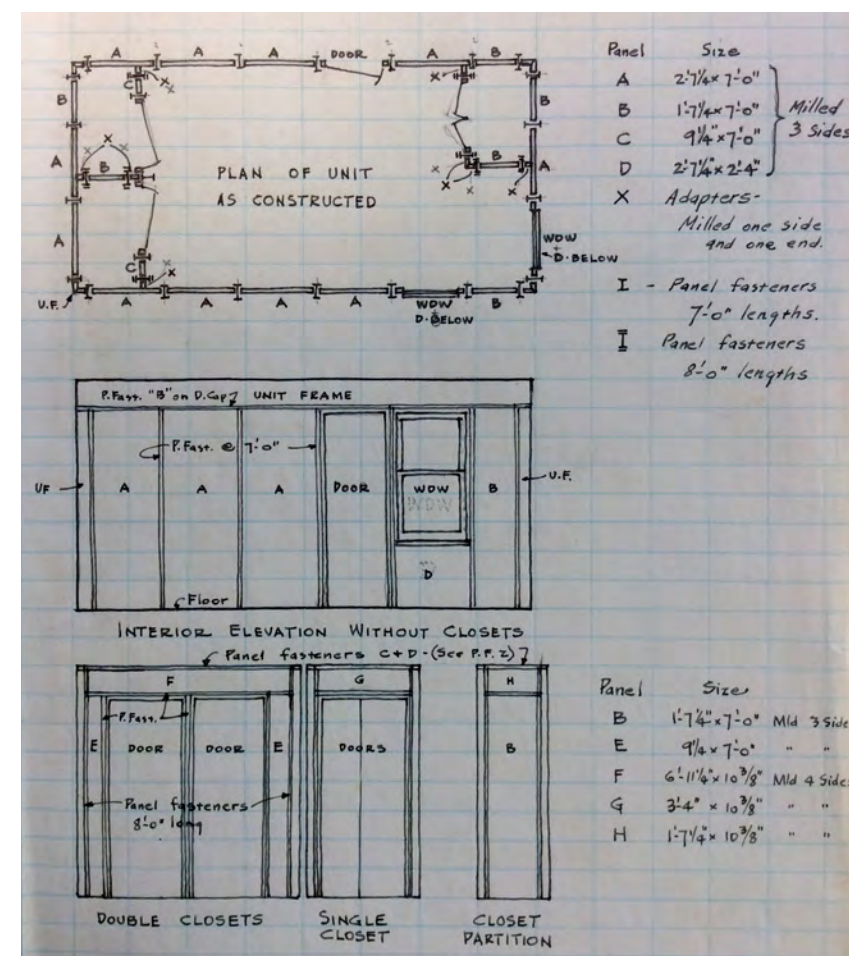 A A A DOOR A B
C
X X
X
B B
X X X
B
A PLAN OF UNIT B A
AS CONSTRUCTED
X X X
A
WDW
D-BELOW
C
X
U.F. A A A A WDW B
D-BELOW
Panel Size
A 2'-7 1/4 x 7'-0"
B 1'-7 1/4 x 7'-0" Milled
C 9 1/4" x 7'-0" 3 Sides
D 2'-7 1/4" x 2'-4"
X Adapters-
Milled one side
and one end.
I - Panel fasteners
7'-0" lengths.
I Panel fasteners
8'-0" lengths
P.Fast. "B" on D.Cap UNIT FRAME
P.Fast. @ 7'-0"
UF A A A DOOR WDW B U.F.
WDW
D
Floor
INTERIOR ELEVATION WITHOUT CLOSETS
Panel fasteners C+D-(See P.F. 2)
F G H
P.Fast.
E DOOR DOOR E DOORS B
Panel fasteners
8'-0" long
DOUBLE CLOSETS SINGLE CLOSET
CLOSET PARTITION
Panel Size
B 1'-7 1/4" x 7'-0" Mld 3 Side
E 9 1/4 x 7'-0" " "
F 6'-11 1/4" x 10 3/8" Mld 4 Sides
G 3'-4" x 10 3/8" " "
H 1'-7 1/4" x 10 3/8" " "